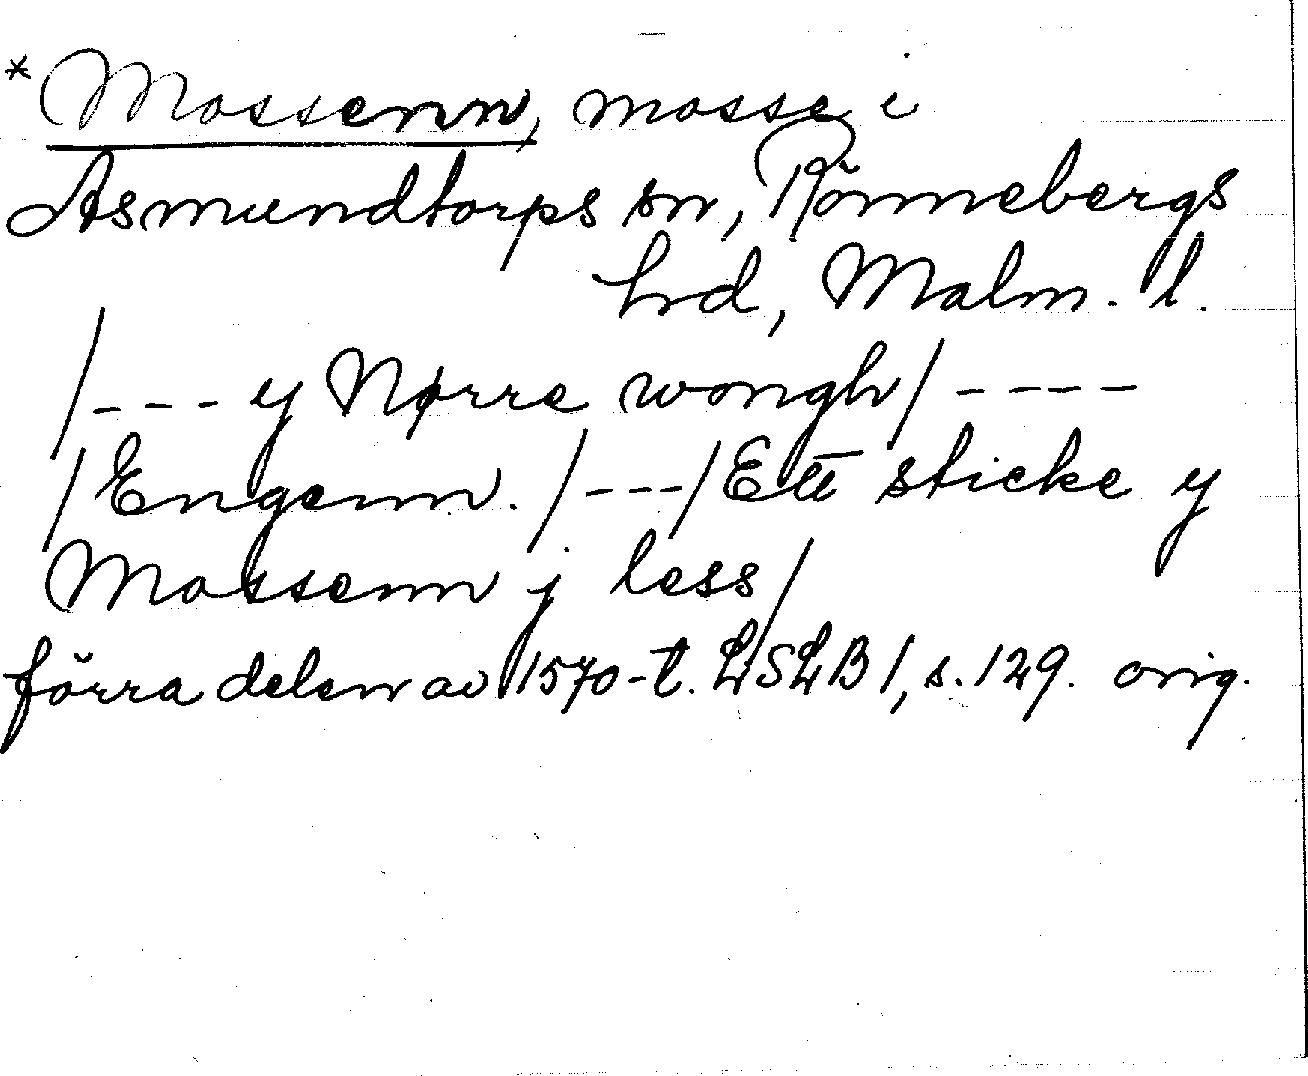 *Mossenn, mosse i
Asmundtorps sn, Rönnebergs
hrd, Malm. l.
/--- y Nørre wongh/ ----
/Engenn./---/Ett sticke y
Mossenn j less/
förra delen av 1570-t. LSLB 1, s. 129. orig.